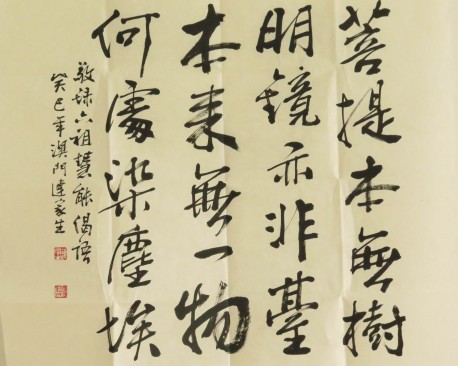 菩提本無樹
明鏡亦非臺
本来無一物
何處染塵埃
敬録六祖慧能偈語
癸巳年澳門連家生